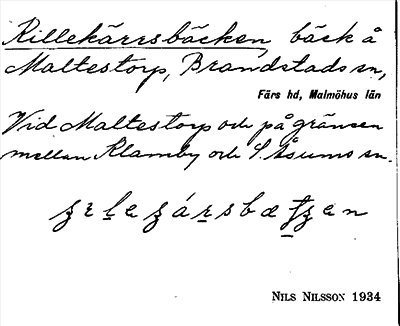 Rillekärrsbäcken, bäck å
Maltestorp, Brandstads sn,
Färs hd, Malmöhus län
Vid Maltestorp och på gränsen
mellan Klamby och S. Åsums sn.
NILS NILSSON 1934